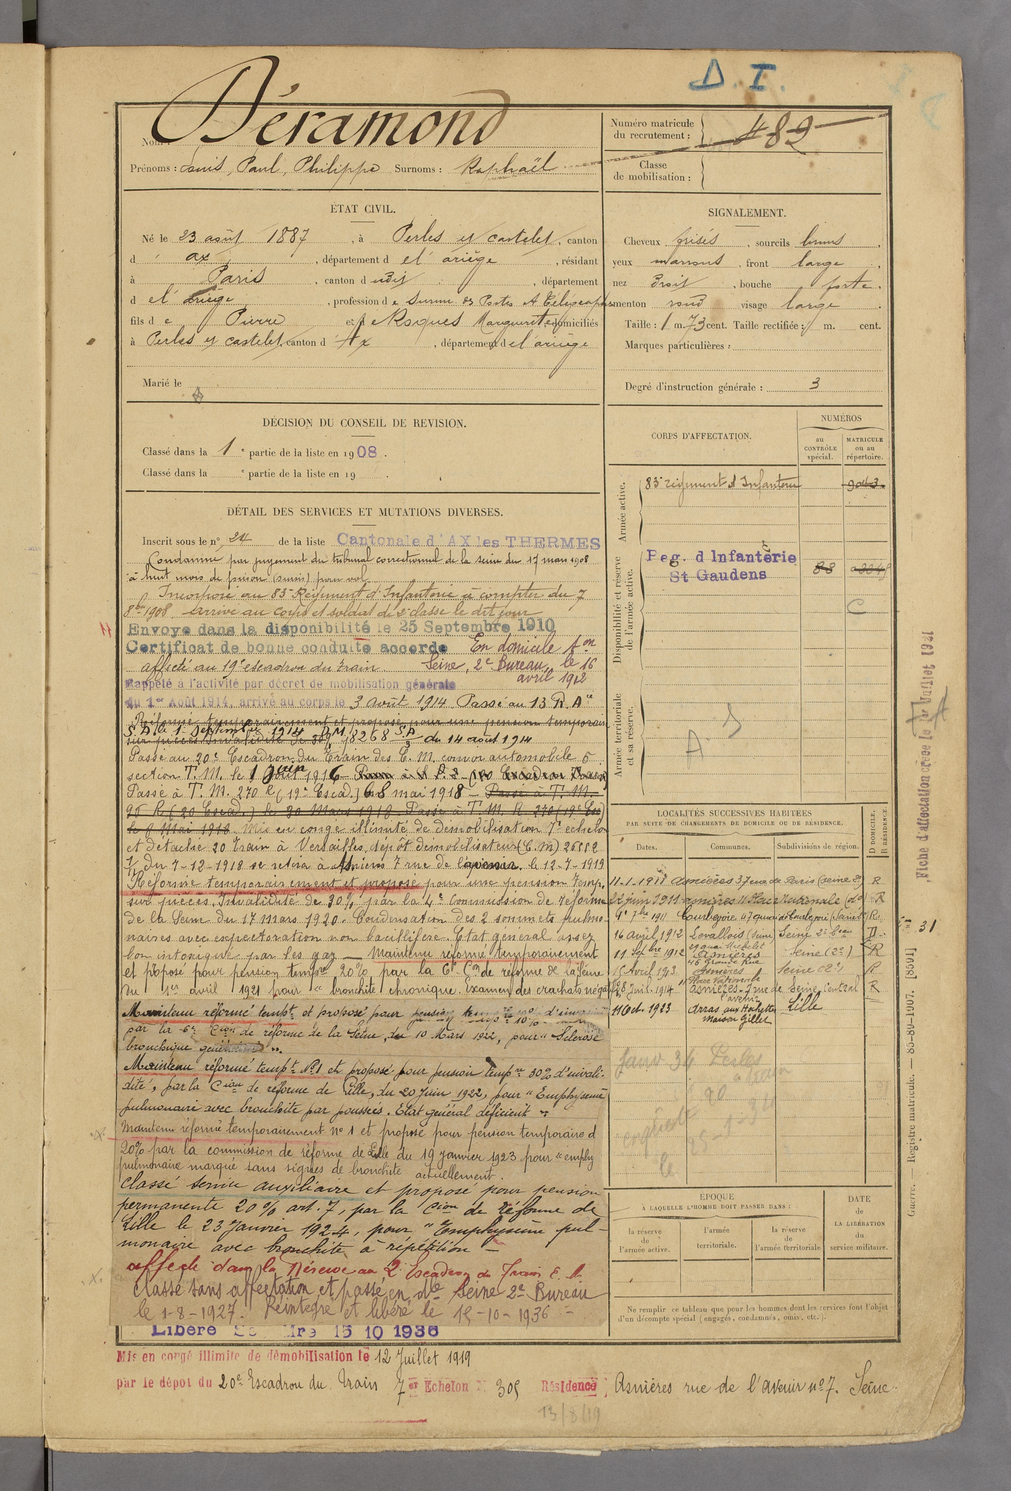 D. I.
Déramond
Nom :
Prénoms : Louis, Paul, Philippe Surnoms : Raphaël
Numéro matricule du recrutement : 482
Classe de mobilisation :
ÉTAT CIVIL.
Né le 23 août 1887, à Perles et Castelet, canton
d' ax, département d e l'ariège, résidant
à Paris, canton d udit, département
d e l'ariège, profession d e Surnum. des Postes et Télégraphes
fils d e Pierre et d e Roques Marguerite, domiciliés
à Perles et Castelet, canton d' Ax, département d e l'ariège
Marié le
SIGNALEMENT.
Cheveux frisés, sourcils bruns,
yeux marrons, front large,
nez droit, bouche forte,
menton rond visage large.
Taille : 1 m. 73 cent. Taille rectifiée : m. cent.
Marques particulières :
Degré d'instruction générale : 3
DÉCISION DU CONSEIL DE REVISION.
Classé dans la 1e partie de la liste en 1908.
Classé dans la e partie de la liste en 19 .
CORPS D'AFFECTATION.
NUMÉROS
au CONTRÔLE spécial.
MATRICULE ou au répertoire.
Armée active.
83e régiment d'Infanterie 9043
Disponibilité et réserve de l'armée active.
Reg. d Infantérie
St Gaudens
C
Armée territoriale et sa réserve.
DÉTAIL DES SERVICES ET MUTATIONS DIVERSES.
Inscrit sous le n° 24 de la liste Cantonale d'AX les THERMES
Condamné par jugement du tribunal correctionnel de la Seine du 17 mars 1908
à huit mois de prison (sursis) pour vol.
Incorporé au 83e Régiment d'Infanterie à compter du 7
8bre 1908. Arrivé au corps et soldat de 2e classe le dit jour
Envoyé dans la disponibilité le 25 Septembre 1910
Certificat de bonne conduite accordé En domicile
affecté au 19e escadron du train. Seine, 2e Bureau, le 16
avril 1912
Rappelé à l'activité par décret de mobilisation générale
du 1er Août 1914, arrivé au corps le 3 août 1914. Passé au 13 R.A.
Réformé temporairement et proposé pour une pension temporaire
le 1 septembre 1914 D.M. 18268 du 14 août 1914
Passé au 20e Escadron du Train des E. M. convoi automobile
section T.M. le 1 Juin 1916
Passé à T.M. 270 R (19e Escad.) le 8 mai 1918 Passé à T.M.
le 30 Mars 1918 Passé à T.M.R. 270 (19e Esc)
le 8 Mai 1918. Mis en congé illimité de démobilisation 7e échelon
et détaché 20 train à Versailles, dépôt démobilisateur (C.M) 26582
du 7-12-1918 se retire à Asnières 7 rue de l'avenir le 12-7-1919
Réformé temporairement et proposé pour une pension temp.
sur pièces. Invalidité de 30% par la 4e commission de réforme
de la Seine du 17 mars 1920. Condensation des 2 sommets pulmo-
naires avec expectoration non bacillifère. État général assez
bon intoxiqué par les gaz — Maintenu réformé temporairement
et proposé pour pension tempre 20% par la 6e Con de réforme de la Seine
du 1er avril 1921 pour "bronchite chronique. Examen des crachats négatif"
Maintenu réformé tempt. et proposé pour pension
par la 6e Cion de réforme de la Seine, du 10 Mars 1922, pour "Sclérose
bronchique généralisée".
Maintenu réformé tempt. N°1 et proposé pour pension tempre 30% d'invali-
dité, par la Cion de réforme de Lille, du 20 Juin 1922, pour "Emphysème
pulmonaire avec bronchite par poussées. État général déficient"
Maintenu réformé temporairement n° 1 et proposé pour pension temporaire d
20% par la commission de réforme de Lille du 19 janvier 1923 pour "emphy
pulmonaire marqué sans signes de bronchite actuellement.
Classé service auxiliaire et proposé pour pension
permanente 20% art. 7, par la Cion de réforme de
Lille le 23 Janvier 1924, pour "Emphysème pul-
monaire avec bronchite à répétition —
affecté dans la Réserve au 2e Escadron du Train
Classé sans affectation et passé en dle Seine 2e Bureau
le 1-8-1927. Réintégré et libéré le 15-10-1936
Libéré 15 10 1936
Mis en congé illimité de démobilisation le 12 Juillet 1919
par le dépôt du 20e Escadron du Train 7e Echelon N° 305 Résidence Asnières rue de l'avenir n° 7. Seine
13/8/19
LOCALITÉS SUCCESSIVES HABITÉES
PAR SUITE DE CHANGEMENTS DE DOMICILE OU DE RÉSIDENCE.
Dates. Communes. Subdivisions de région. D DOMICILE. R RÉSIDENCE.
11-1-1911 Asnières 37 rue de Paris (Seine 2e) R
juin 1911 asnières 11 Place Nationale (do) R
7bre 1911 Courbevoie 47 quai de Courbevoie R
16 avril 1912 Levallois (Seine) Seine 2e Bau D
11 7bre 1912 Asnières 46 Grande Rue Seine (2e) R
15 Avril 1913 Asnières 11 Place Nationale Seine (2e) R
28 Juil. 1914 Asnières 7 rue de l'avenir Seine Central R
11 Oct. 1923 Arras aux Hochettes Maison Gillet Lille
Janv 34 Perles
25-1-34
ÉPOQUE
À LAQUELLE L'HOMME DOIT PASSER DANS :
la réserve de l'armée active.
l'armée territoriale.
la réserve de l'armée territoriale
DATE de LA LIBÉRATION du service militaire.
Ne remplir ce tableau que pour les hommes dont les services font l'objet
d'un décompte spécial (engagés, condamnés, omis, etc.).
Fiche d'affectation créée le 1er Juillet 1921
31
Guerre. — Registre matricule. — 85-89-1907. [8501]